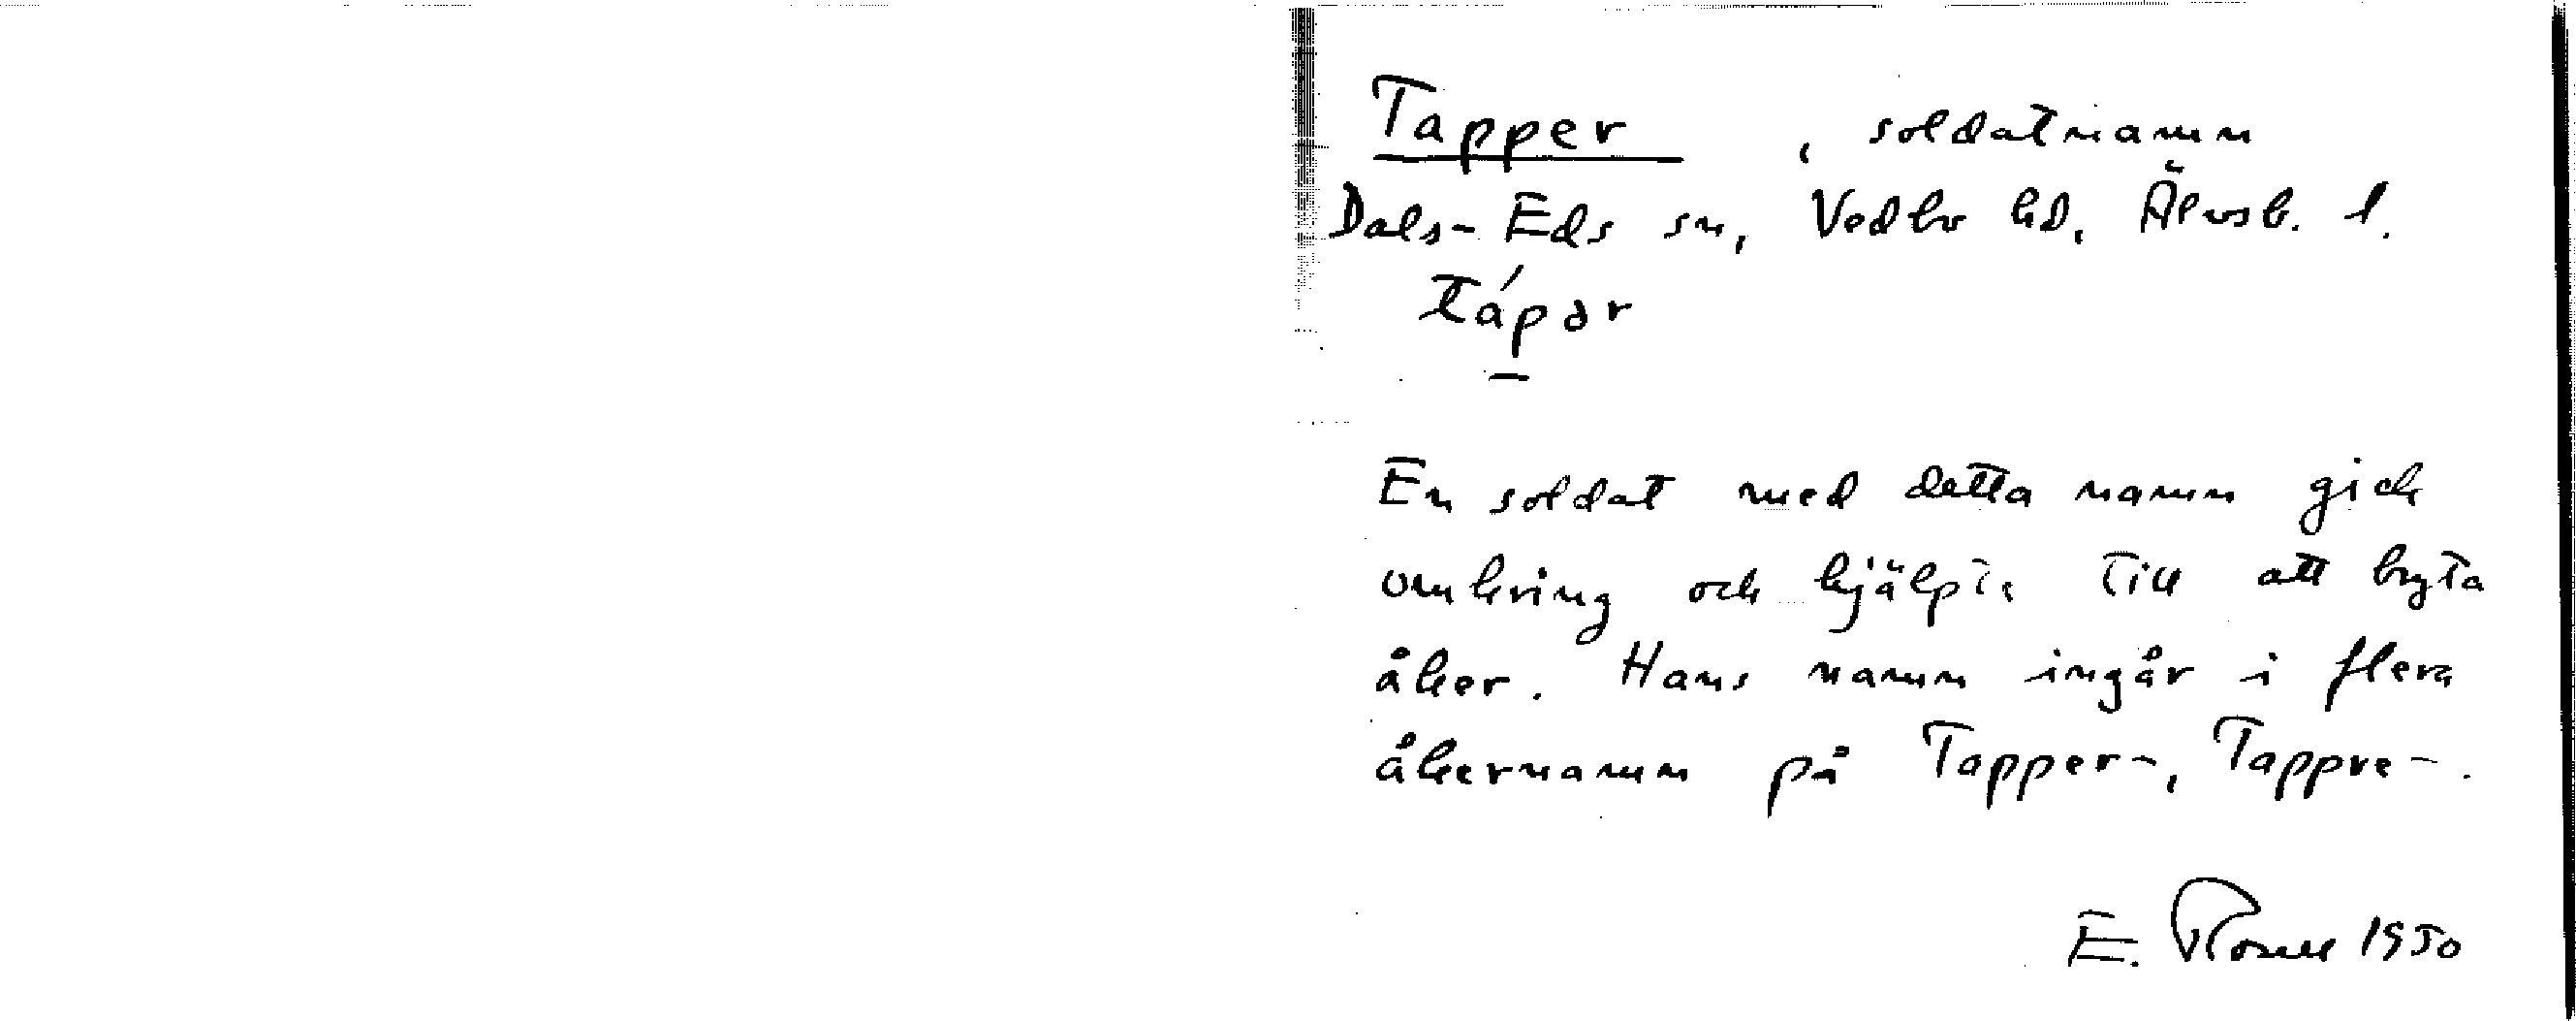 Tapper, soldatnamn
Dals-Eds sn, Vedbo hd, Älvsb. l.
tápər
En soldat med detta namn gick
omkring och hjälpte till att bryta
åker. Hans namn ingår i flera
åkernamn på Tapper-, Tappre-.
E. 1950